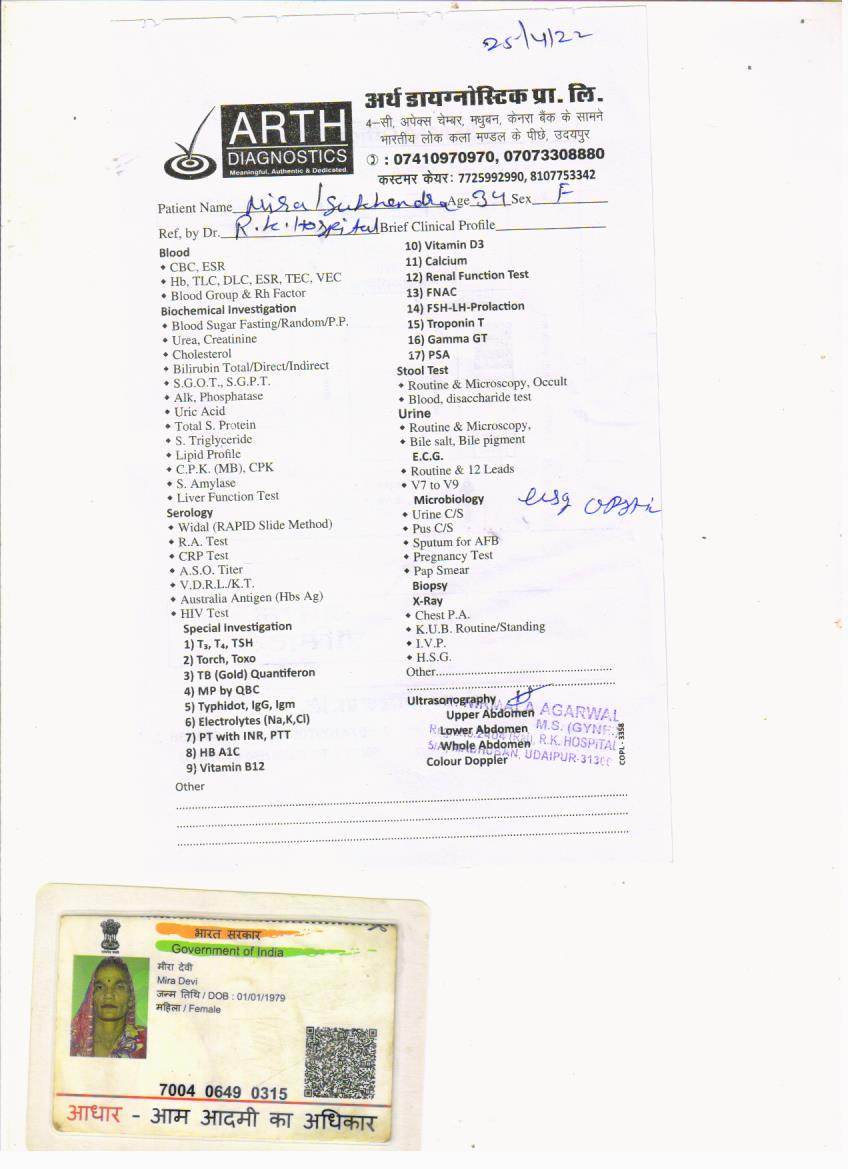 25/4/22
ARTH
DIAGNOSTICS
Meaningful, Authentic & Dedicated.
अर्थ डायग्नोस्टिक प्रा. लि.
4–सी, अपेक्स चेम्बर, मधुबन, केनरा बैंक के सामने
भारतीय लोक कला मण्डल के पीछे, उदयपुर
: 07410970970, 07073308880
कस्टमर केयर: 7725992990, 8107753342
Patient Name Mira/Sukhendra Age 34 Sex F
Ref, by Dr. R.K. Hospital Brief Clinical Profile
Blood
CBC, ESR
Hb, TLC, DLC, ESR, TEC, VEC
Blood Group & Rh Factor
Biochemical Investigation
Blood Sugar Fasting/Random/P.P.
Urea, Creatinine
Cholesterol
Bilirubin Total/Direct/Indirect
S.G.O.T., S.G.P.T.
Alk, Phosphatase
Uric Acid
Total S. Protein
S. Triglyceride
Lipid Profile
C.P.K. (MB), CPK
S. Amylase
Liver Function Test
Serology
Widal (RAPID Slide Method)
R.A. Test
CRP Test
A.S.O. Titer
V.D.R.L./K.T.
Australia Antigen (Hbs Ag)
HIV Test
Special Investigation
1) T₃, T₄, TSH
2) Torch, Toxo
3) TB (Gold) Quantiferon
4) MP by QBC
5) Typhidot, IgG, Igm
6) Electrolytes (Na,K,Cl)
7) PT with INR, PTT
8) HB A1C
9) Vitamin B12
Other
10) Vitamin D3
11) Calcium
12) Renal Function Test
13) FNAC
14) FSH-LH-Prolaction
15) Troponin T
16) Gamma GT
17) PSA
Stool Test
Routine & Microscopy, Occult
Blood, disaccharide test
Urine
Routine & Microscopy,
Bile salt, Bile pigment
E.C.G.
Routine & 12 Leads
V7 to V9
Microbiology
Urine C/S
Pus C/S
Sputum for AFB
Pregnancy Test
Pap Smear
Biopsy
X-Ray
Chest P.A.
K.U.B. Routine/Standing
I.V.P.
H.S.G.
Other
usg
Ultrasonography
Upper Abdomen
Lower Abdomen
Whole Abdomen
Colour Doppler
NIRMALA AGARWAL
M.S. (GYNE.)
R.K. HOSPITAL
MADHUBAN, UDAIPUR-3130
COPL - 3358
भारत सरकार
Government of India
मीरा देवी
Mira Devi
जन्म तिथि / DOB : 01/01/1979
महिला / Female
7004 0649 0315
आधार - आम आदमी का अधिकार